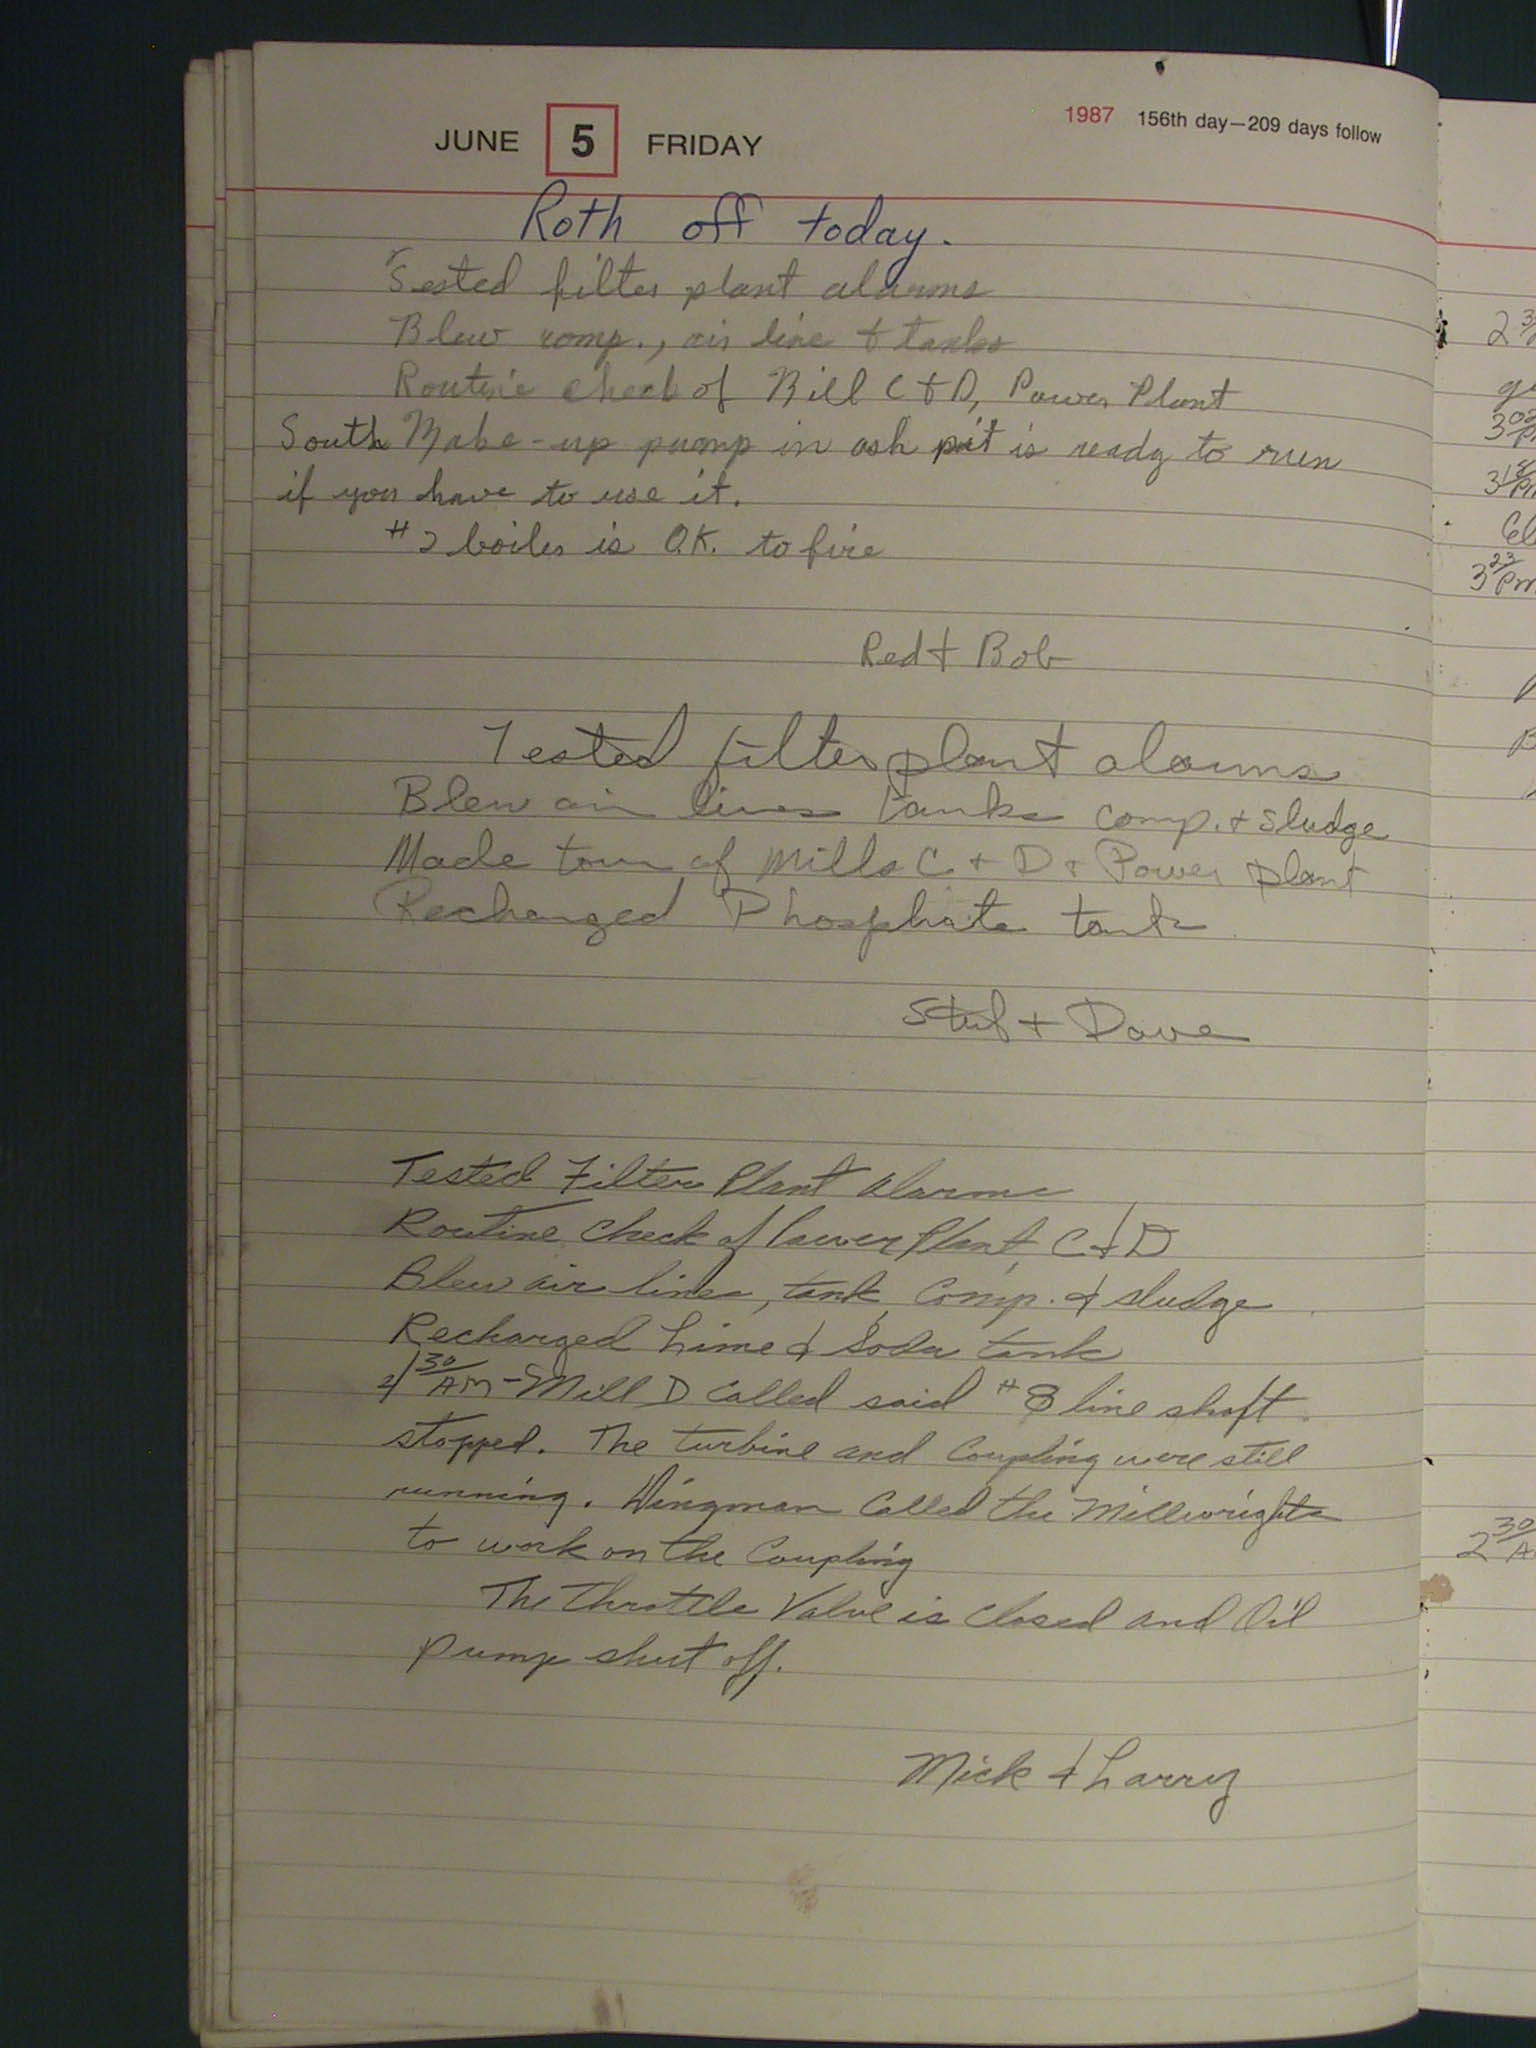 JUNE 5 FRIDAY 1987 156th day—209 days follow
Roth off today.
Tested filter plant alarms
Blew comp., air line & tanks
Routine check of Mill C & D, Power Plant
South Make-up pump in ash pit is ready to run
if you have to use it.
#2 boiler is O.K. to fire
Red & Bob
Tested filter plant alarms
Blew air lines tanks comp. & sludge
Made tour of Mills C & D & Power plant
Recharged Phosphate tank
Stub + Dave
Tested Filter Plant Alarms
Routine Check of Power Plant, C & D
Blew air lines, tank, Comp. & sludge
Recharged Lime & Soda tank
30 AM - Mill D Called said #8 line shaft
stopped. The turbine and Coupling were still
running. Wingman Called the Millwrights
to work on the Coupling
The Throttle Valve is Closed and Oil
pump shut off.
Mick & Larry
2 30
3 23 Pm
2 30 A